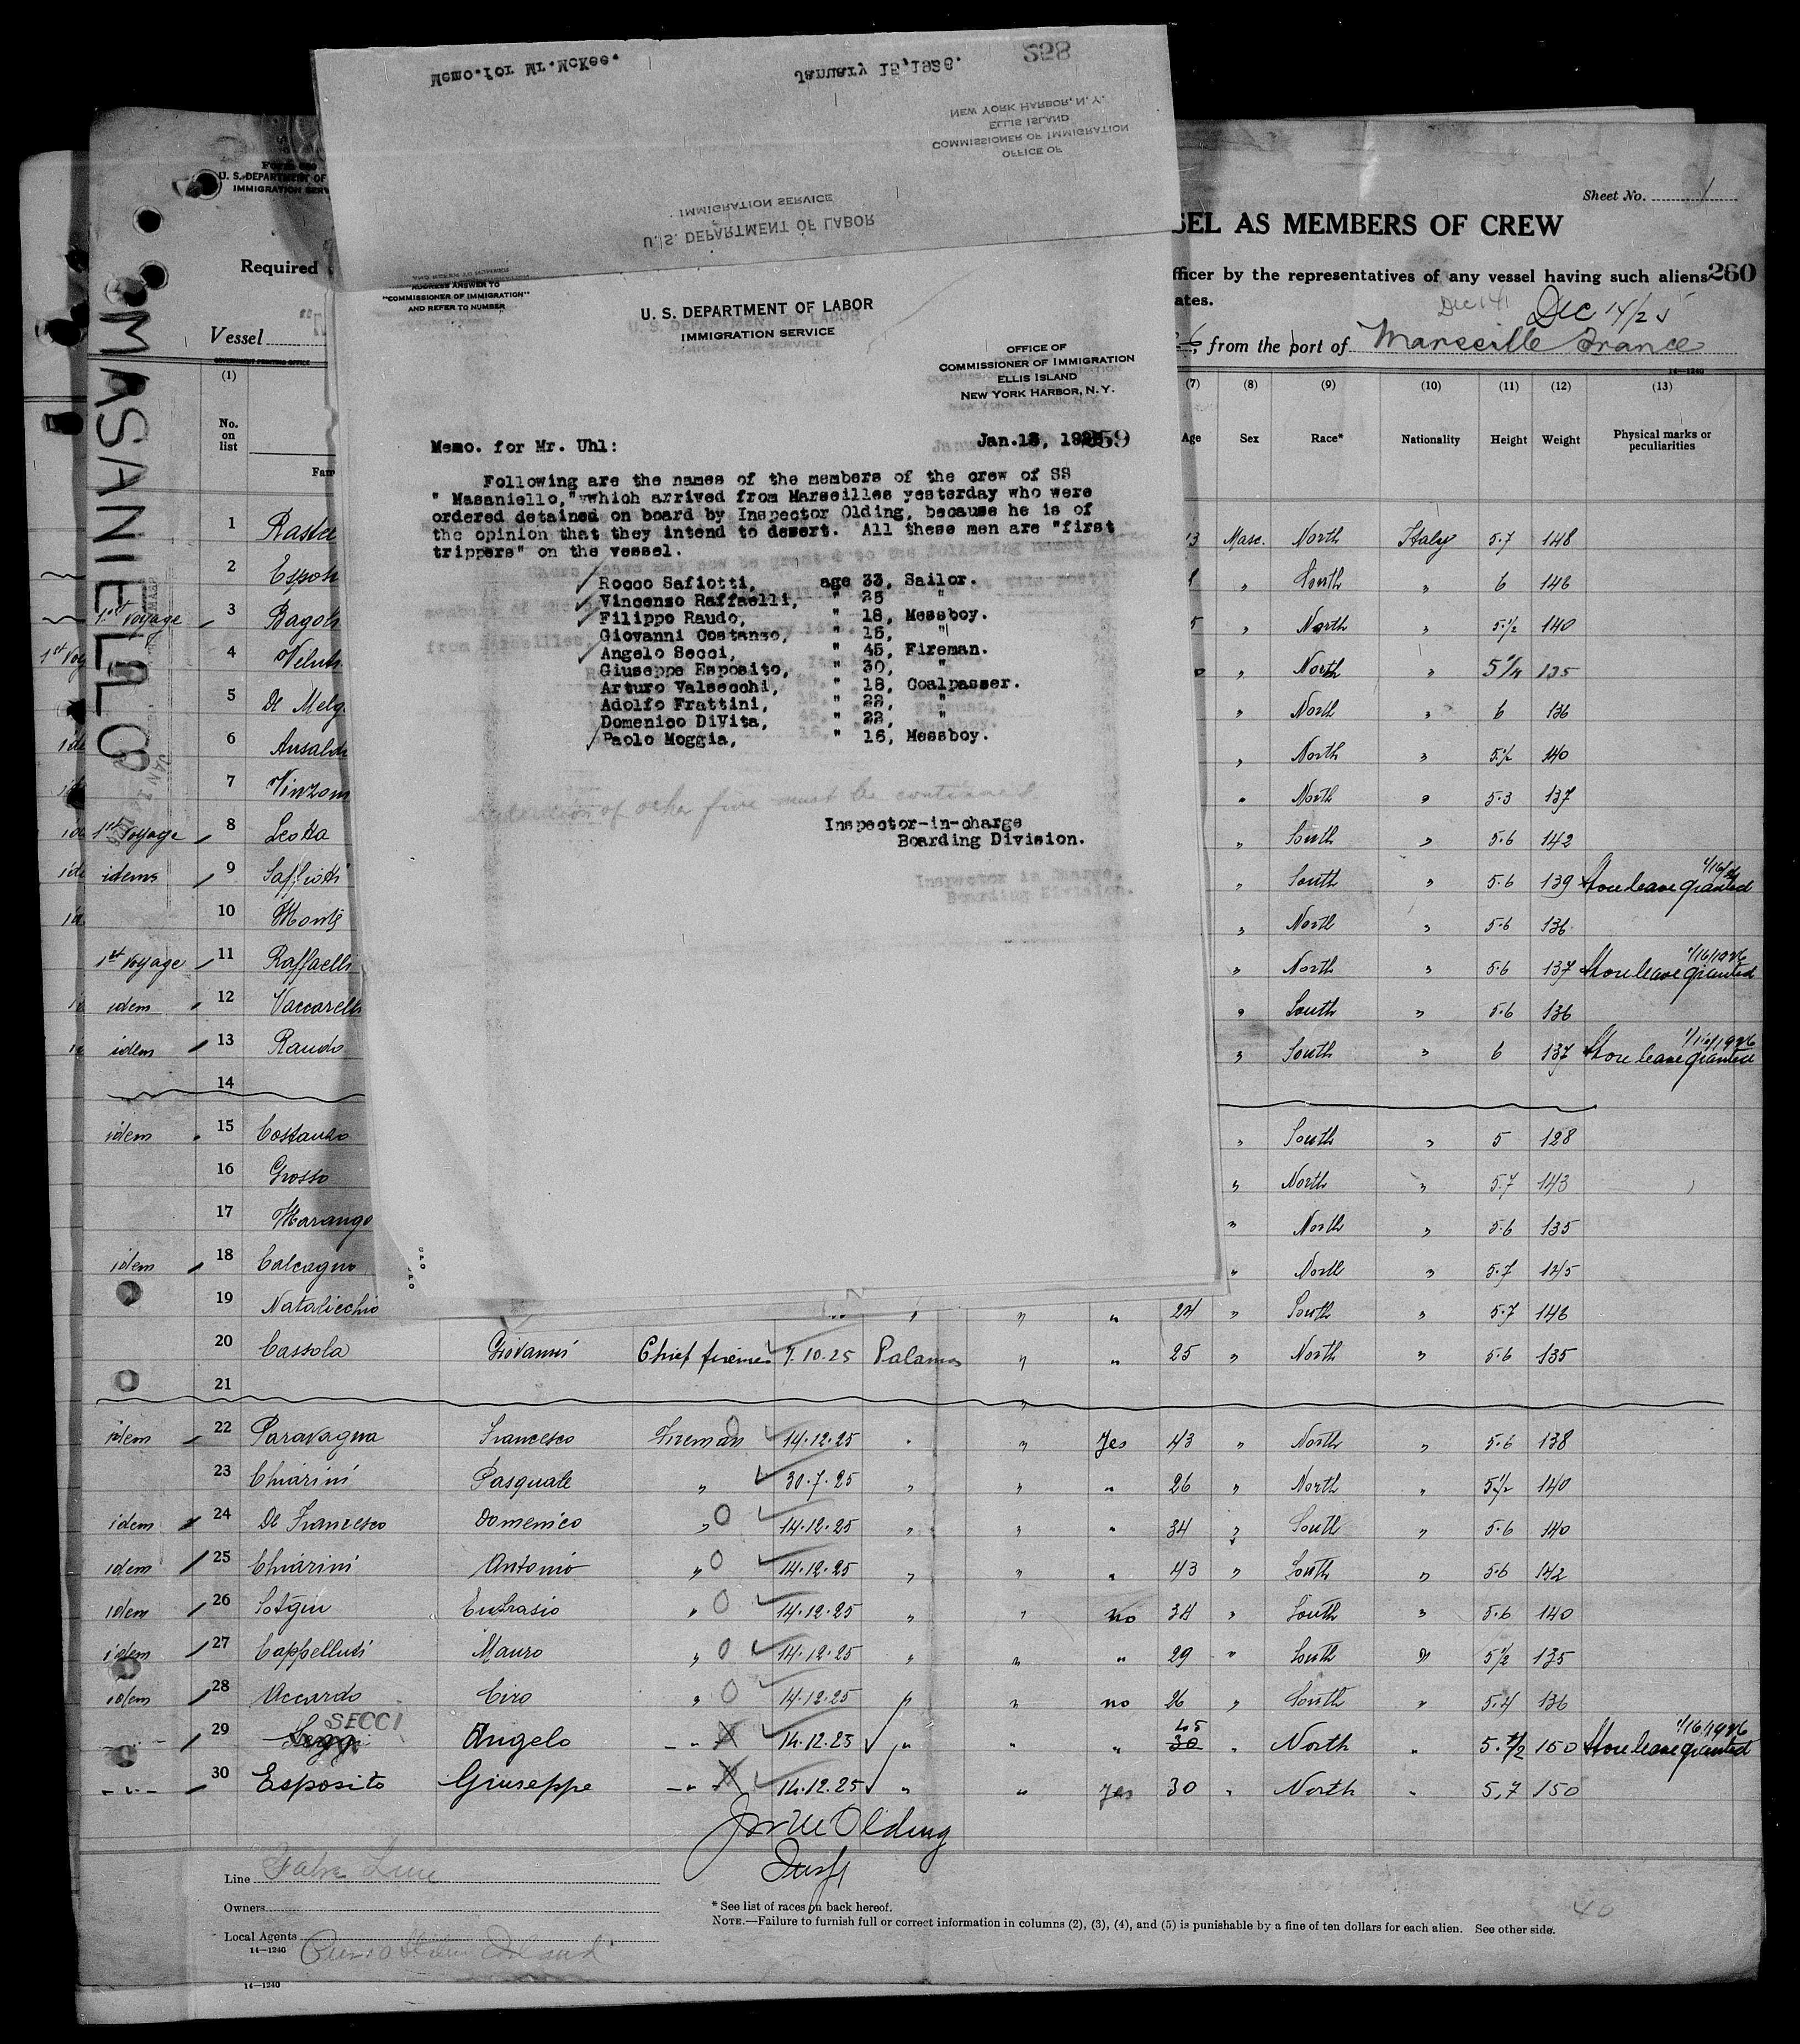 Memo.for Mr.McKee.
January 15,1926.
258
NEW YORK HARBOR, N.Y.
ELLIS ISLAND
COMMISSIONER OF IMMIGRATION
OFFICE OF
IMMIGRATION SERVICE
U. S. DEPARTMENT OF LABOR
ADDRESS ANSWER TO
"COMMISSIONER OF IMMIGRATION"
AND REFER TO NUMBER
U. S. DEPARTMENT OF LABOR
IMMIGRATION SERVICE
OFFICE OF
COMMISSIONER OF IMMIGRATION
ELLIS ISLAND
NEW YORK HARBOR, N.Y.
Memo. for Mr. Uhl:
259
Following are the names of the members of the crew of SS
" Masaniello," which arrived from Marseilles yesterday who were
ordered detained on board by Inspector Olding, because he is of
the opinion that they intend to desert. All these men are "first
trippers" on the vessel.
Rocco Safiotti, age 33, Sailor.
Vincenso Raffaelli, " 25 "
Filippo Raudo, " 18, Messboy.
Giovanni Costanso, " 15, "
Angelo Secci, " 45, Fireman.
Giuseppe Esposito, " 30, "
Arturo Valsecchi, " 18, Coalpasser.
Adolfo Frattini, " 22, "
Domenico DiVita, " 22, "
Paolo Moggia, " 16, Messboy.
Detention of other five must be continued
Inspector-in-charge
Boarding Division.
Inspector in Charge,
Boarding Division.
MASANIELLO
U. S. DEPARTMENT OF
IMMIGRATION SERV
Required
Vessel
GOVERNMENT PRINTING OFFICE
Sheet No. 1
SEL AS MEMBERS OF CREW
fficer by the representatives of any vessel having such aliens 260
ates.
Dec 14/25
, from the port of Marseille France
14—1240
(1) (7) (8) (9) (10) (11) (12) (13)
No. on list Fam Age Sex Race* Nationality Height Weight Physical marks or peculiarities
1 Masc. North Italy 5.7 148
2 Espos " South " 6 146
1st Voyage 3 Ragots " North " 5½ 140
4 " North " 5¼ 135
5 De Melg " North " 6 136
6 Ansald " North " 5½ 140
7 Vinzon " North " 5.3 137
1st Voyage 8 Leotta " South " 5.6 142
idems 9 Saffiotti " South " 5.6 139 Shore leave granted
10 " North " 5.6 136
1st Voyage 11 Raffaelli " North " 5.6 137 1/16/1926 Shore leave granted
idem 12 Vaccarella " South " 5.6 136
idem 13 Raudo " South " 6 137 1/16/1926 Shore leave granted
14
idem 15 Costanzo " South " 5 128
16 Grosso " North " 5.7 143
17 Marango " North " 5.6 135
idem 18 Calcagno " North " 5.7 145
19 Natalicchio " " " 24 " South " 5.7 146
20 Cassola Giovanni Chief firemen 7.10.25 Palamos " " 25 " North " 5.6 135
21
idem 22 Paravagna Francesco Fireman 14.12.25 " " Yes 43 " North " 5.6 138
23 Chiarini Pasquale " 30.7.25 " " " 26 " North " 5½ 140
idem 24 De Francesco Domenico " 0 14.12.25 " " " 34 " South " 5.6 140
idem 25 Chiarini Antonio " 0 14.12.25 " " " 43 " South " 5.6 142
idem 26 Sotgiu Eufrasio " 0 14.12.25 " " no 34 " South " 5.6 140
idem 27 Cappelluti Mauro " 0 14.12.25 " " " 29 " South " 5½ 135
idem 28 Accardo Ciro " 0 14.12.25 " " no 26 " South " 5.4 136
SECCI 45
29 Angelo " 14.12.25 " " " 30 " North " 5.½ 150 1/16/1926 Shore leave granted
30 Esposito Giuseppe " 14.12.25 " " Yes 30 " North " 5.7 150
Olding
Insp
Line Fabre Line
Owners
* See list of races on back hereof.
NOTE.—Failure to furnish full or correct information in columns (2), (3), (4), and (5) is punishable by a fine of ten dollars for each alien. See other side.
40
Local Agents
14—1240
14—1240